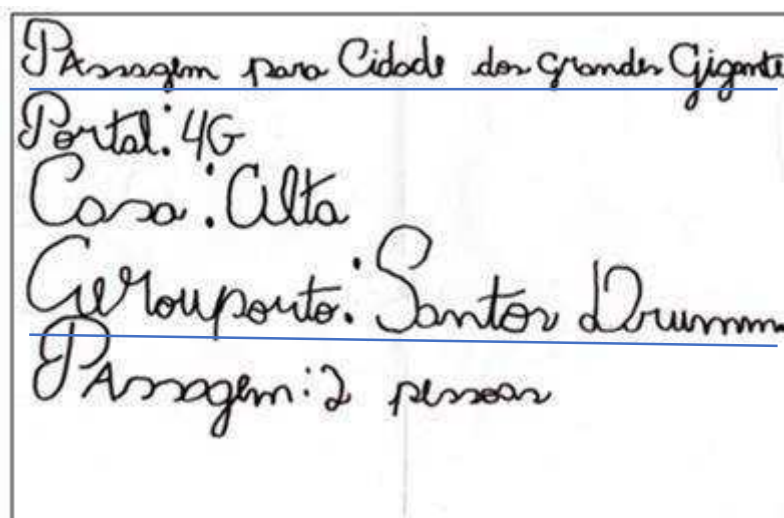 Passagem para Cidade dos Grandes Gigante
Portal: 4G
Casa: Alta
Aerouporto: Santos Drumm
Passagem: 2 pessoas